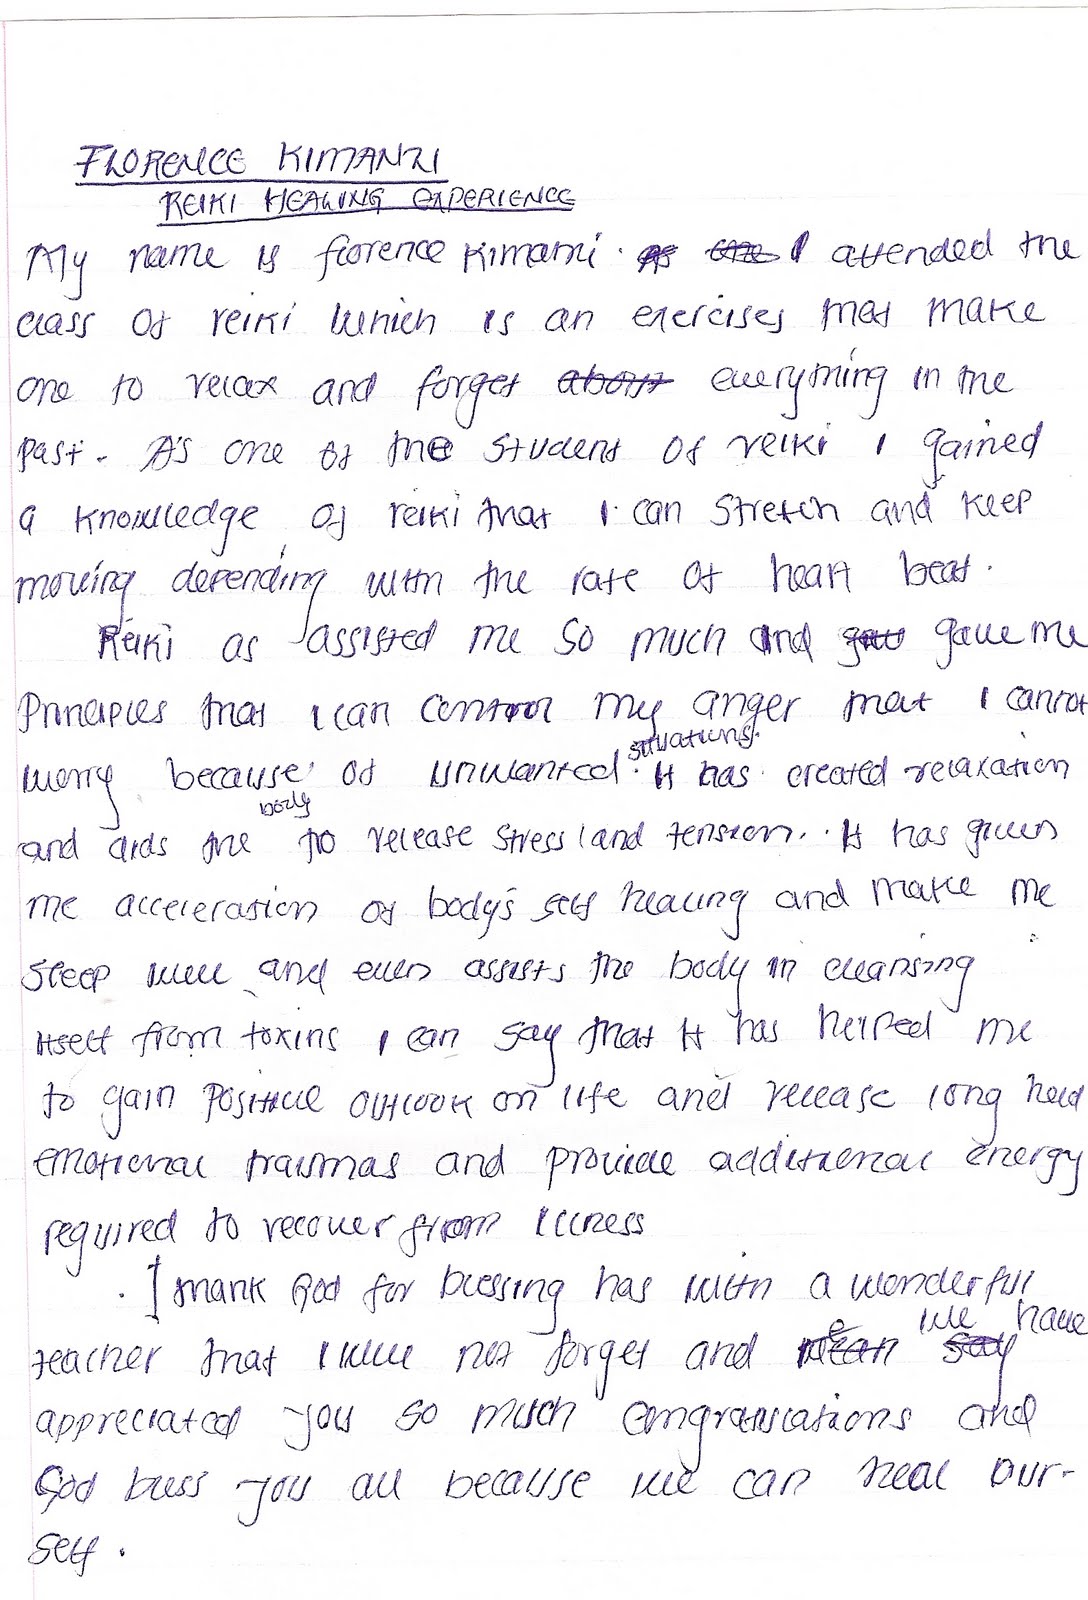 FLORENCE KIMANZI
REIKI HEALING EXPERIENCE
My name is florence Kimanzi. I attended the
class of reiki which is an exercises that make
one to relax and forget about everything in the
past. As one of the student of reiki I gained
a knowledge of reiki that I can stretch and keep
moving depending with the rate of heart beat.
Reiki as assisted me so much and gave me
Principles that I can control my anger that I cannot
worry because of unwanted situations. It has created relaxation
and aids the body to release stress and tension. It has given
me acceleration of body's self healing and make me
sleep well and even assists the body in cleansing
itself from toxins I can say that it has helped me
to gain positive outlook on life and release long held
emotional traumas and provide additional energy
required to recover from illness
I thank God for blessing has with a wonderful
teacher that I will not forget and we have
appreciated you so much congratulations and
God bless you all because we can heal our-
self.